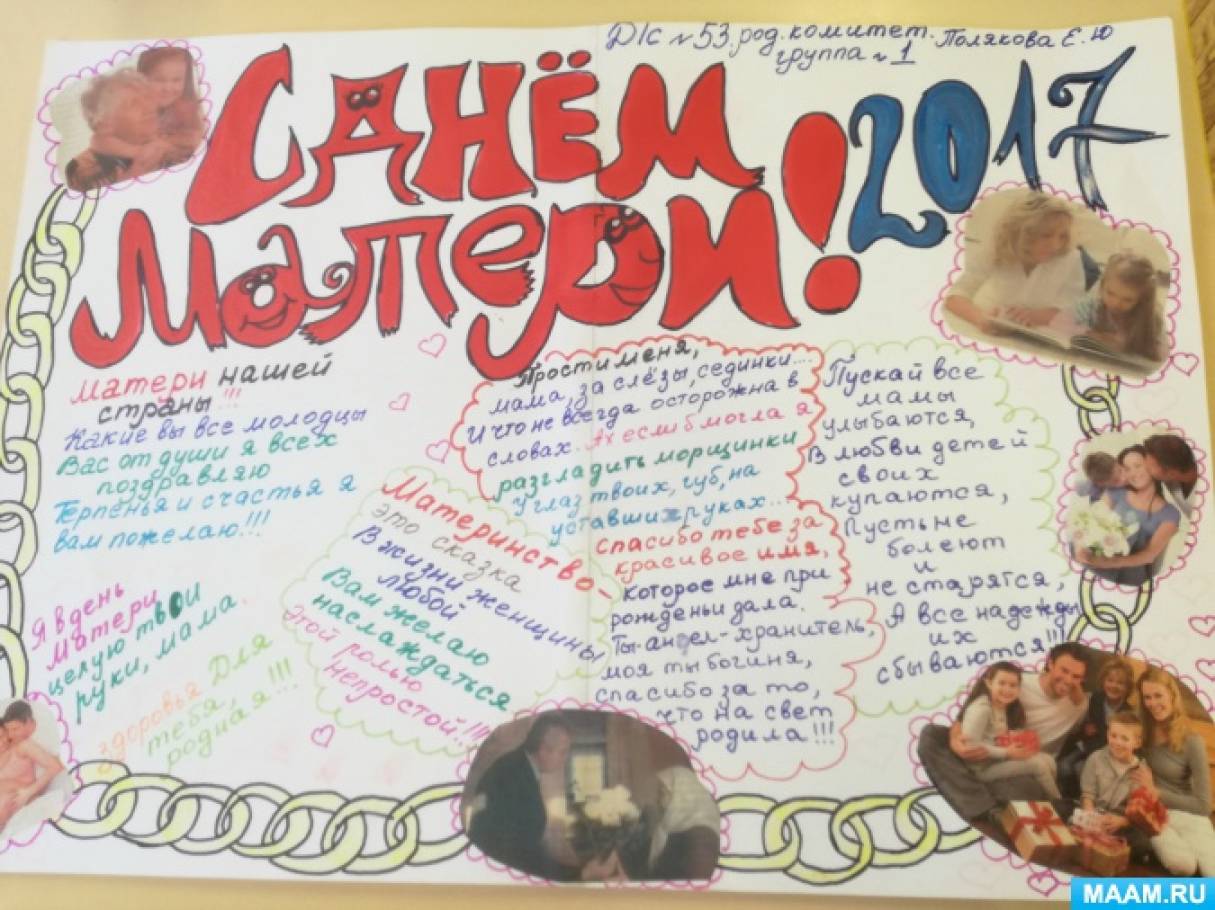 Д/с №53, род. комитет. Полякова Е. Ю
группа №1
С ДНЁМ
Матери! 2017
Матери нашей
страны!!!
Какие вы все молодцы
Вас от души я всех
поздравляю
Терпенья и счастья я
вам пожелаю!!!
Я в день
Матери
целую твои
руки, мама.
Здоровья Для
тебя,
родная!!!
Материнство-
это сказка
В жизни женщины
любой
Вам желаю
наслаждаться
Этой ролью
непростой!!!
Прости меня,
мама, за слёзы, сединки....
И что не всегда осторожна в
словах. Ах если б могла я
разгладить морщинки
У глаз твоих, губ, на
уставших руках...
Спасибо тебе за
красивое имя,
которое мне при
рожденьи дала.
Ты-ангел-хранитель,
моя ты богиня,
спасибо за то,
что на свет
родила!!!
Пускай все
мамы
улыбаются,
В любви детей
своих
купаются,
Пусть не
болеют
и
не старятся,
А все надежды
их
сбываются!!!
MAAM.RU